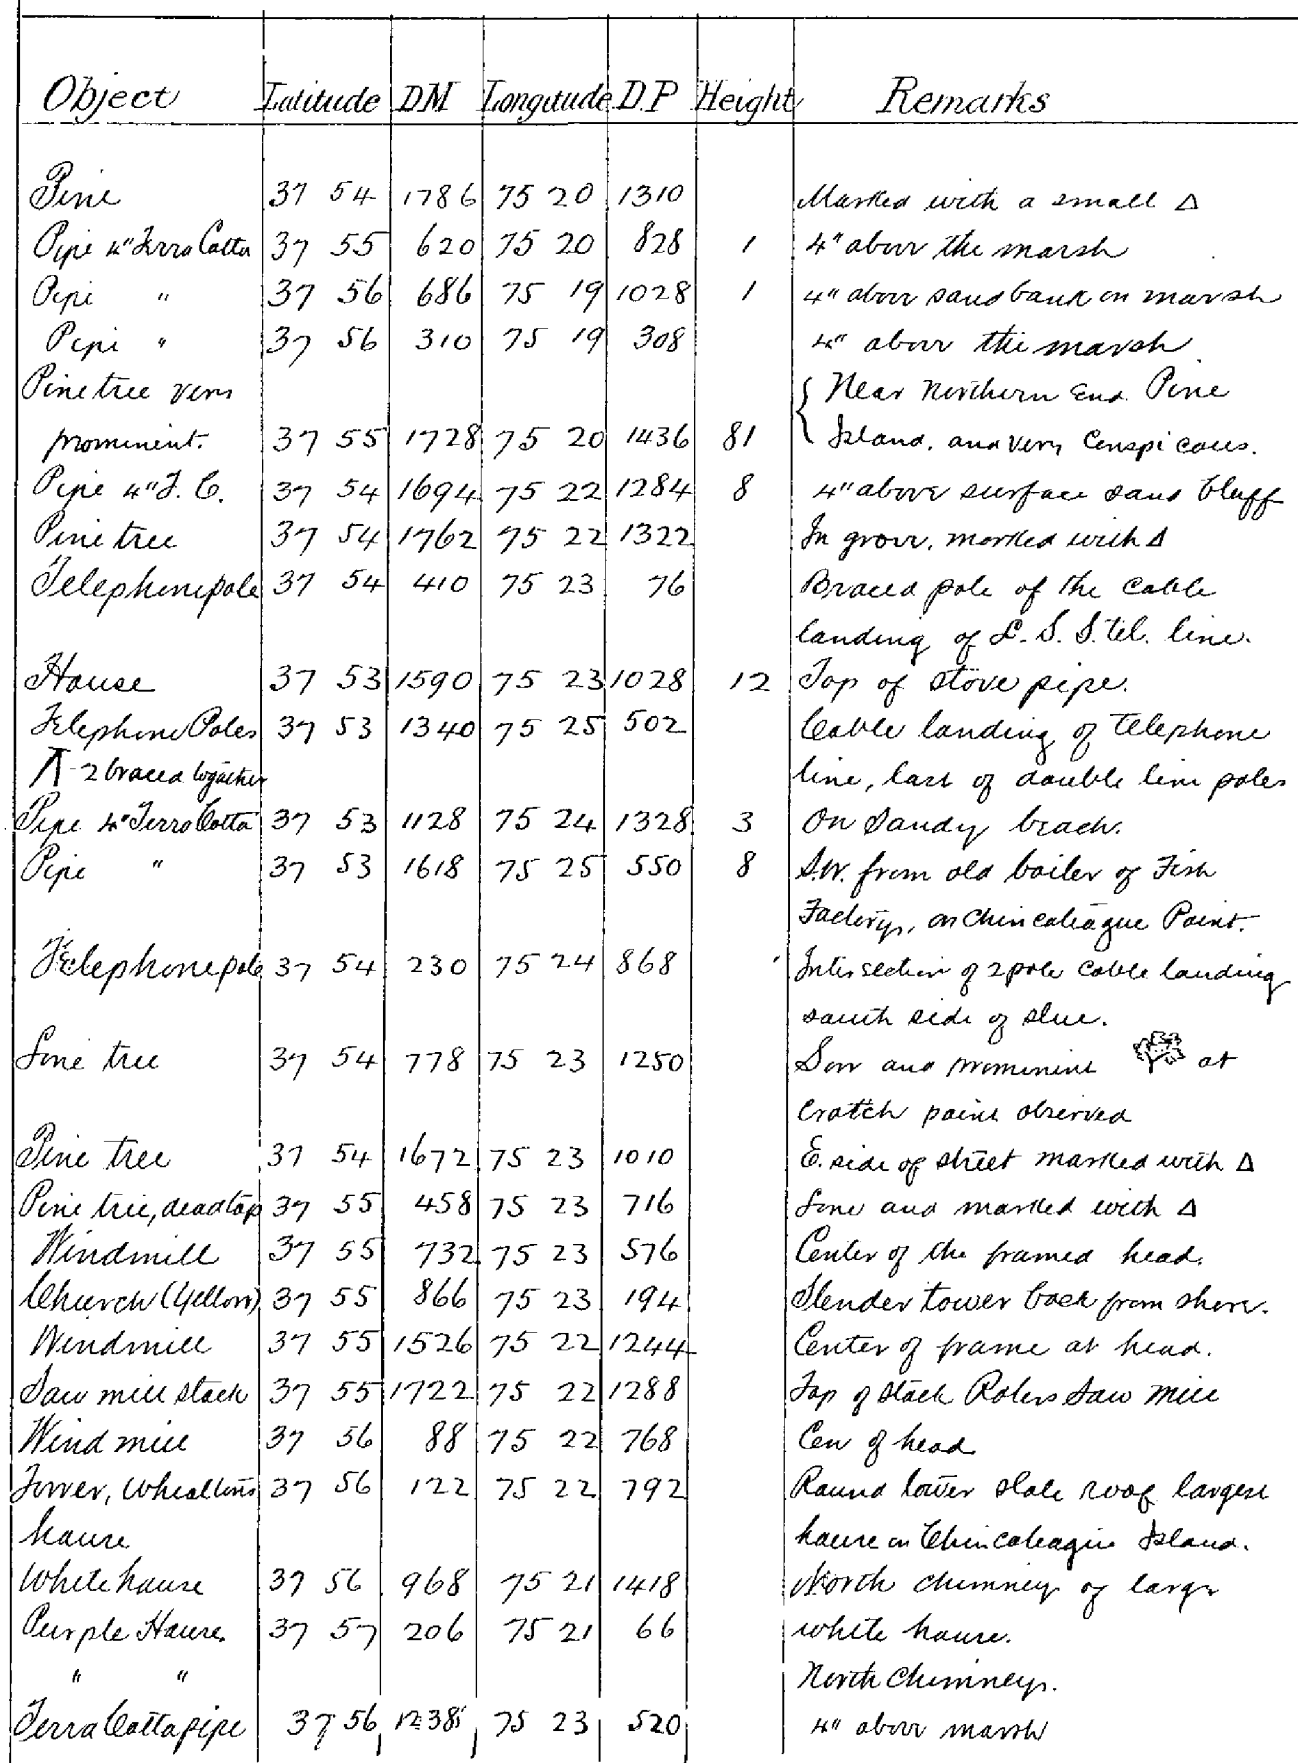 Object Latitude DM Longitude D.P Height Remarks
Pine 37 54 1786 75 20 1310 Marked with a small Δ
Pipe 4" Terra Cotta 37 55 620 75 20 828 1 4" above the marsh
Pipe " 37 56 686 75 19 1028 1 4" above sand bank on marsh
Pipe " 37 56 310 75 19 308 4" above the marsh
Pine tree very { Near Northern End Pine
prominent. 37 55 1728 75 20 1436 81 Island, and very Conspicous.
Pipe 4" T. C. 37 54 1694 75 22 1284 8 4" above surface sand bluff
Pine tree 37 54 1762 75 22 1322 In grove, marked with Δ
Telephone pole 37 54 410 75 23 76 Braced pole of the cable
landing of L. S. S. tel. line.
House 37 53 1590 75 23 1028 12 Top of stove pipe.
Telephone Poles 37 53 1340 75 25 502 Cable landing of telephone
2 braced together line, last of double line poles
Pipe 4" Terra Cotta 37 53 1128 75 24 1328 3 On Sandy beach.
Pipe " 37 53 1618 75 25 550 8 S.W. from old boiler of Fish
Factory, on Chincoteague Point.
Telephone pole 37 54 230 75 24 868 Intersection of 2 pole cable landing
south side of slue.
Lone tree 37 54 778 75 23 1250 Low and prominent at
Crotch point observed
Pine tree 37 54 1672 75 23 1010 E. side of street marked with Δ
Pine tree, dead top 37 55 458 75 23 716 Lone and marked with Δ
Windmill 37 55 732 75 23 576 Center of the framed head.
Church (Yellow) 37 55 866 75 23 194 Slender tower back from shore.
Windmill 37 55 1526 75 22 1244 Center of frame at head.
Saw mill stack 37 55 1722 75 22 1288 Top of stack Saw mill
Wind mill 37 56 88 75 22 768 Cen of head
Tower, Whealton's 37 56 122 75 22 792 Round tower slate roof largest
house house on Chincoteague Island.
White house 37 56 968 75 21 1418 North chimney of large
Purple House 37 57 206 75 21 66 white house.
" " North Chimney.
Terra Cotta pipe 37 56 1238 75 23 520 4" above marsh